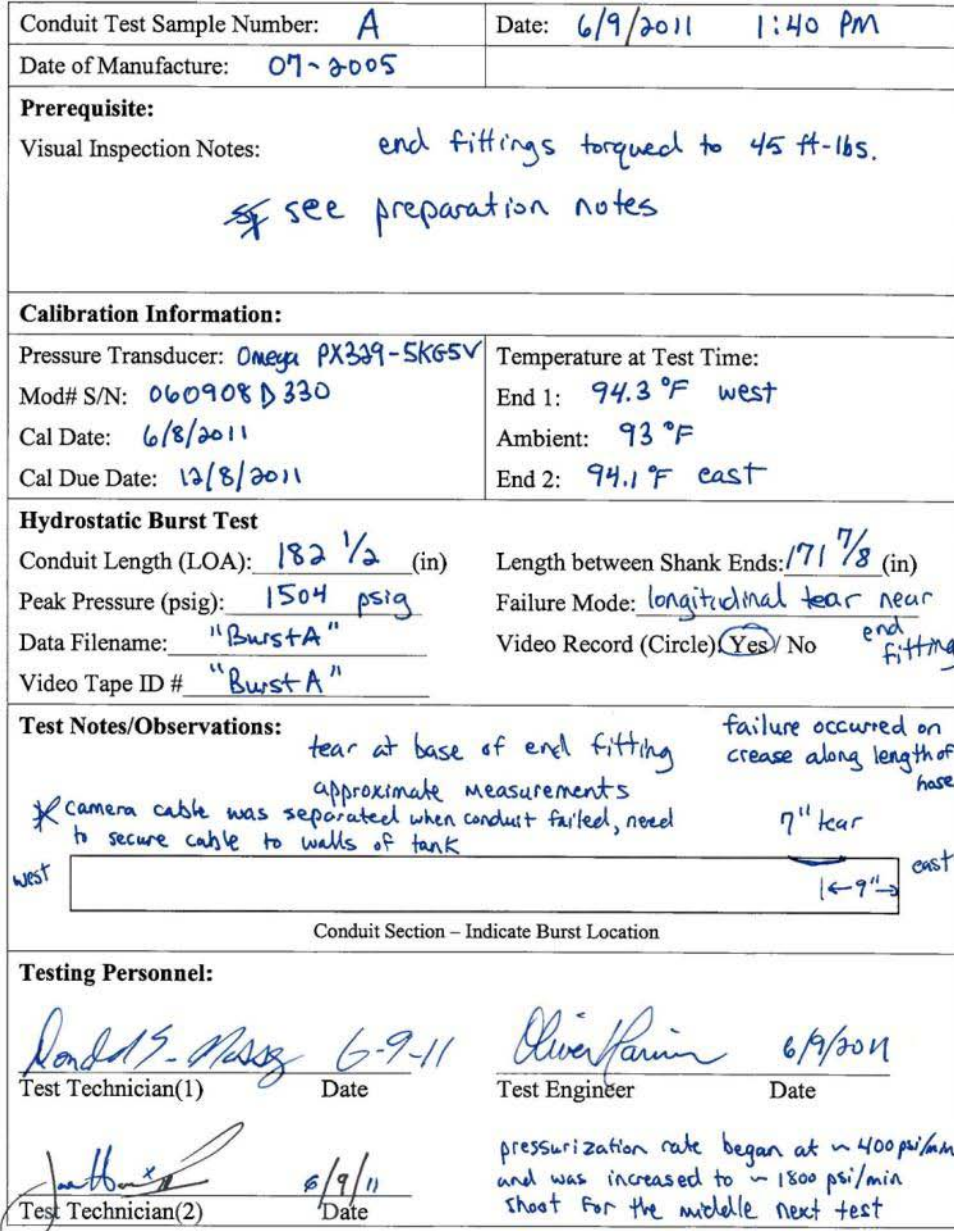 Conduit Test Sample Number: A
Date: 6/9/2011 1:40 PM
Date of Manufacture: 07-2005
Prerequisite:
Visual Inspection Notes: end fittings torqued to 45 ft-lbs.
see preparation notes
Calibration Information:
Pressure Transducer: Omega PX329-5KG5V
Mod# S/N: 060908D330
Cal Date: 6/8/2011
Cal Due Date: 12/8/2011
Temperature at Test Time:
End 1: 94.3 °F west
Ambient: 93 °F
End 2: 94.1 °F east
Hydrostatic Burst Test
Conduit Length (LOA): 182 1/2 (in)
Peak Pressure (psig): 1504 psig
Data Filename: "BurstA"
Video Tape ID # "BurstA"
Length between Shank Ends: 171 7/8 (in)
Failure Mode: longitudinal tear near
end
fitting
Video Record (Circle) Yes / No
Test Notes/Observations:
tear at base of end fitting
approximate measurements
failure occurred on
crease along length of
hose
* camera cable was separated when conduit failed, need
to secure cable to walls of tank
7" tear
west
east
9"
Conduit Section – Indicate Burst Location
Testing Personnel:
6-9-11
Test Technician(1) Date
6/9/2011
Test Engineer Date
6/9/11
Test Technician(2) Date
pressurization rate began at ~ 400 psi/min
and was increased to ~ 1800 psi/min
shoot for the middle next test